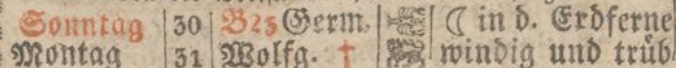 Sonntag 30 B23 Germ. ☾ in d. Erdferne
Montag 31 Wolfg. † windig und trüb